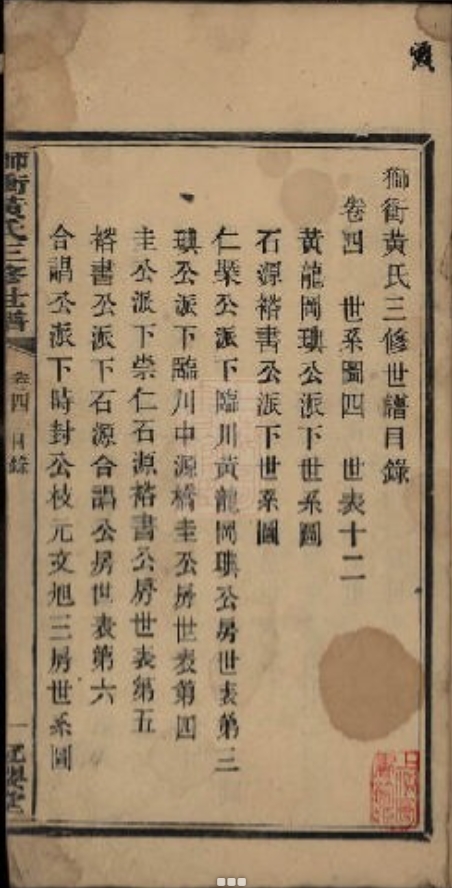 獅衝黃氏三修世譜目錄
卷四 世系圖四 世表十二
黃龍岡璵公派下世系圖
石源裕書公派下世系圖
仁檗公派下臨川黃龍岡璵公房世表第三
璵公派下臨川中源橋圭公房世表第四
圭公派下崇仁石源裕書公房世表第五
裕書公派下石源合謌公房世表第六
合謌公派下時封公枝元文旭三房世系圖
師衝黃氏三修世譜 卷四 目錄 一